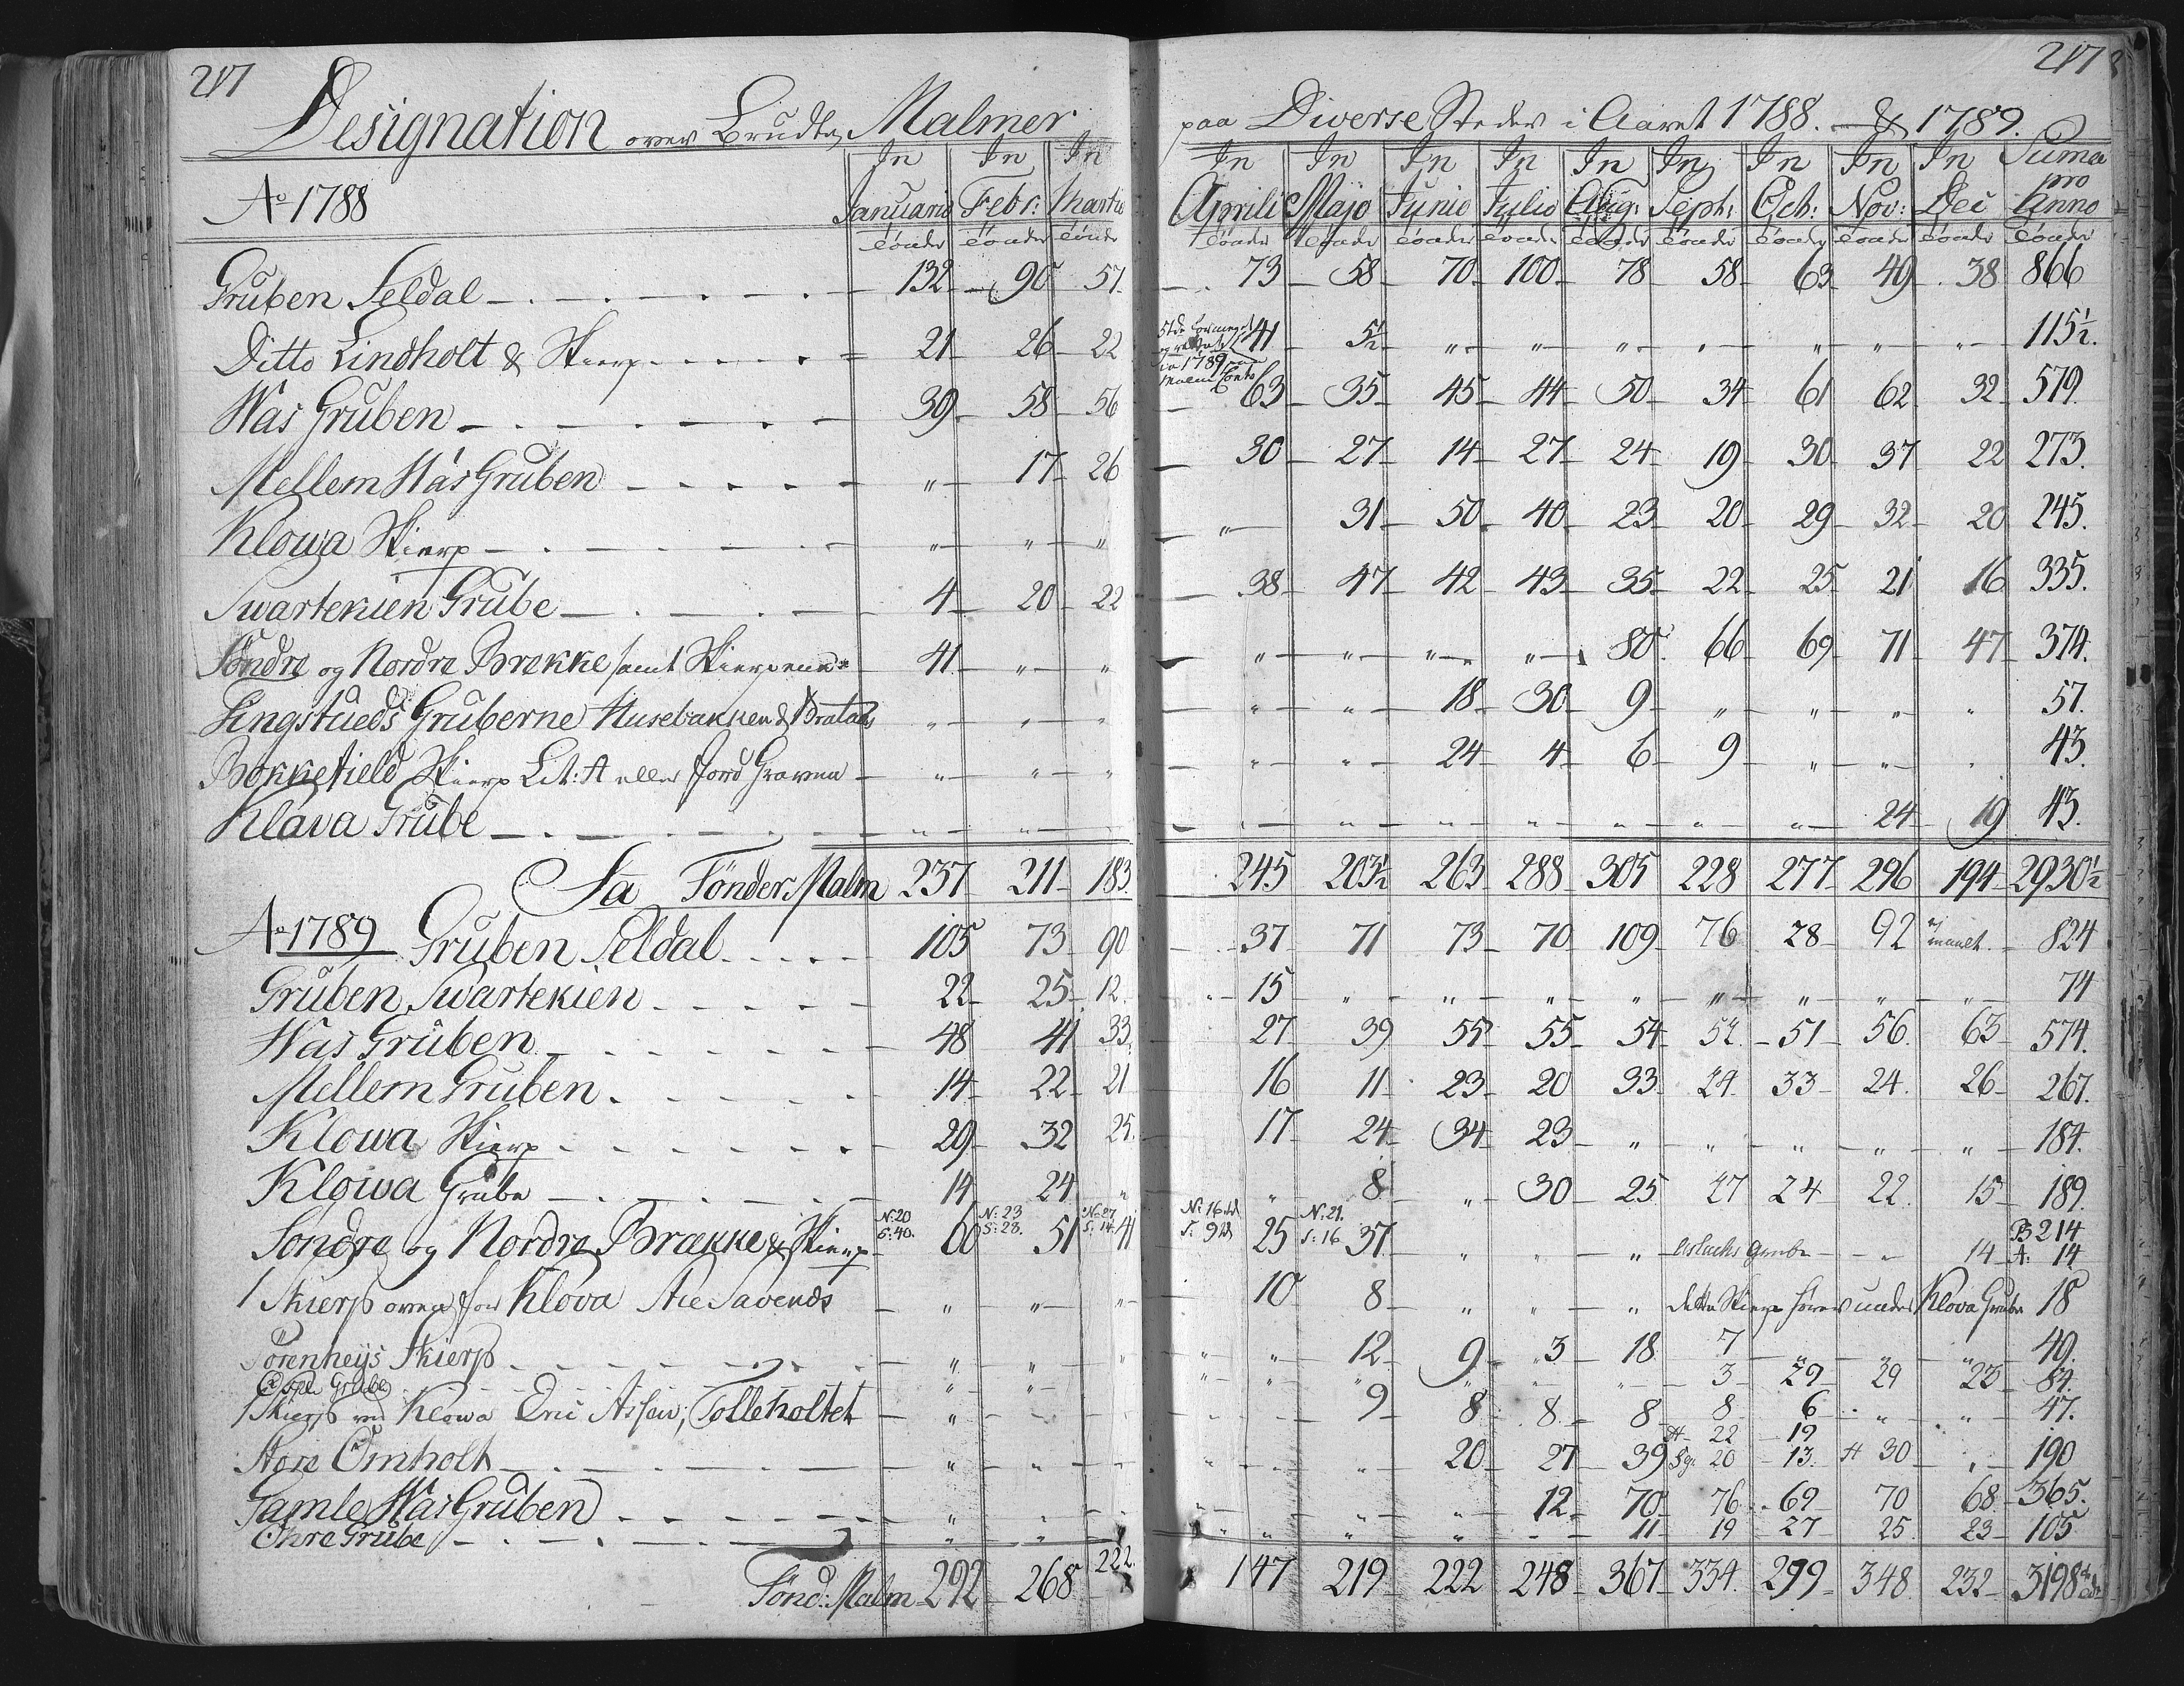 217
217
Designation over Brudte Malmer paa Diverse Steder i Aaret 1788. & 1789.
Ao 1788 In Januario In Febr: In Martio In Aprili In Majo In Junio In Julio In Aug: In Septr: In Octb: In Nov: In Dec Suma pro Anno
tönder tönder tönder tönder tönder tönder tönder tönder tönder tönder tönder tönder tönder
Gruben Seldal 132 90 57. 73 58 70 100 78 58 63 49 38 866
Ditto Lindholt & Skierp 21 26 22 41 5½ " " " " " " " 115½.
Was Gruben 39 58 56 63 35 45 44 50 34 61 62 32 579.
Mellem Wás Gruben " 17 26 30 27 14 27 24 19 30 37 22 273.
Klowa Skierp " " " " 31 50 40 23 20 29 32 20 245.
Swartekien Grube 4 20 22 38 47 42 43 35 22 25 21 16 335.
Söndre og Nordre Brekke samt Skierpene 41 " " " " " " 80 66 69 71 47 374.
Lingstueds Gruberne Husebakken & Bratads " " " " " 18 30 9 " " " " 57.
Bokkefield Skierp Lit: A eller Jord Graven " " " " " 24 4 6 9 " " " 43.
Klåva Grube " " " " " " " " " " 24 19 43.
Sa Tönder Malm 237 211 183 245 203½ 263 288 305 228 277 296 194 2930½
Ao 1789 Gruben Seldal 105 73 90 37 71 73 70 109 76 28 92 ej maalt. 824
Gruben Swartekien 22 25 12. 15 " " " " " " " " 74
Wås Gruben 48 41 33. 27 39 55 55 54 52. 51 56. 63 574.
Mellem Gruben 14 22 21 16 11 23 20 33 24. 33 24. 26 267.
Klowa Skierp 29 32 25. 17 24 34 23 " " " " " 184.
Klowa Grube 14 24 " " 8 " 30 25 27 24 22. 15 189.
Söndre og Nordre Brække & Skierp N: 20 S: 40. 60 N: 23 S: 28. 51 N: 27 S: 14. 41 N: 16 S: 9 25 N: 21. S: 16 37. " " " Aslachs Grube " 14 B 214 A: 14
1 Skierp oven for Klova Aie Savends " " " 10 8 " " " dette Skierp hører under Klova Grube 18
Sörenheijs Skierp " " " " 12 9 3 18 7 " " " 49.
Grube " " " " " " " 3 29 29 23 84.
1 Skierp ved Klowa Eric Assen, Tolleholtet " 9 8 8 8 8 6 " " 47.
Store Omholt " " " " " 20 27 39 A 22 Sg. 20 19 13. A 30 " 190
Gamle Wås Gruben " " " " " " 12 70 76 69 70 68 365.
Öhre Grube " " " " " " 11 19 27 25 23 105
Tönd: Malm 292 268 222. 147 219 222 248 367 334. 299 348 232 3198